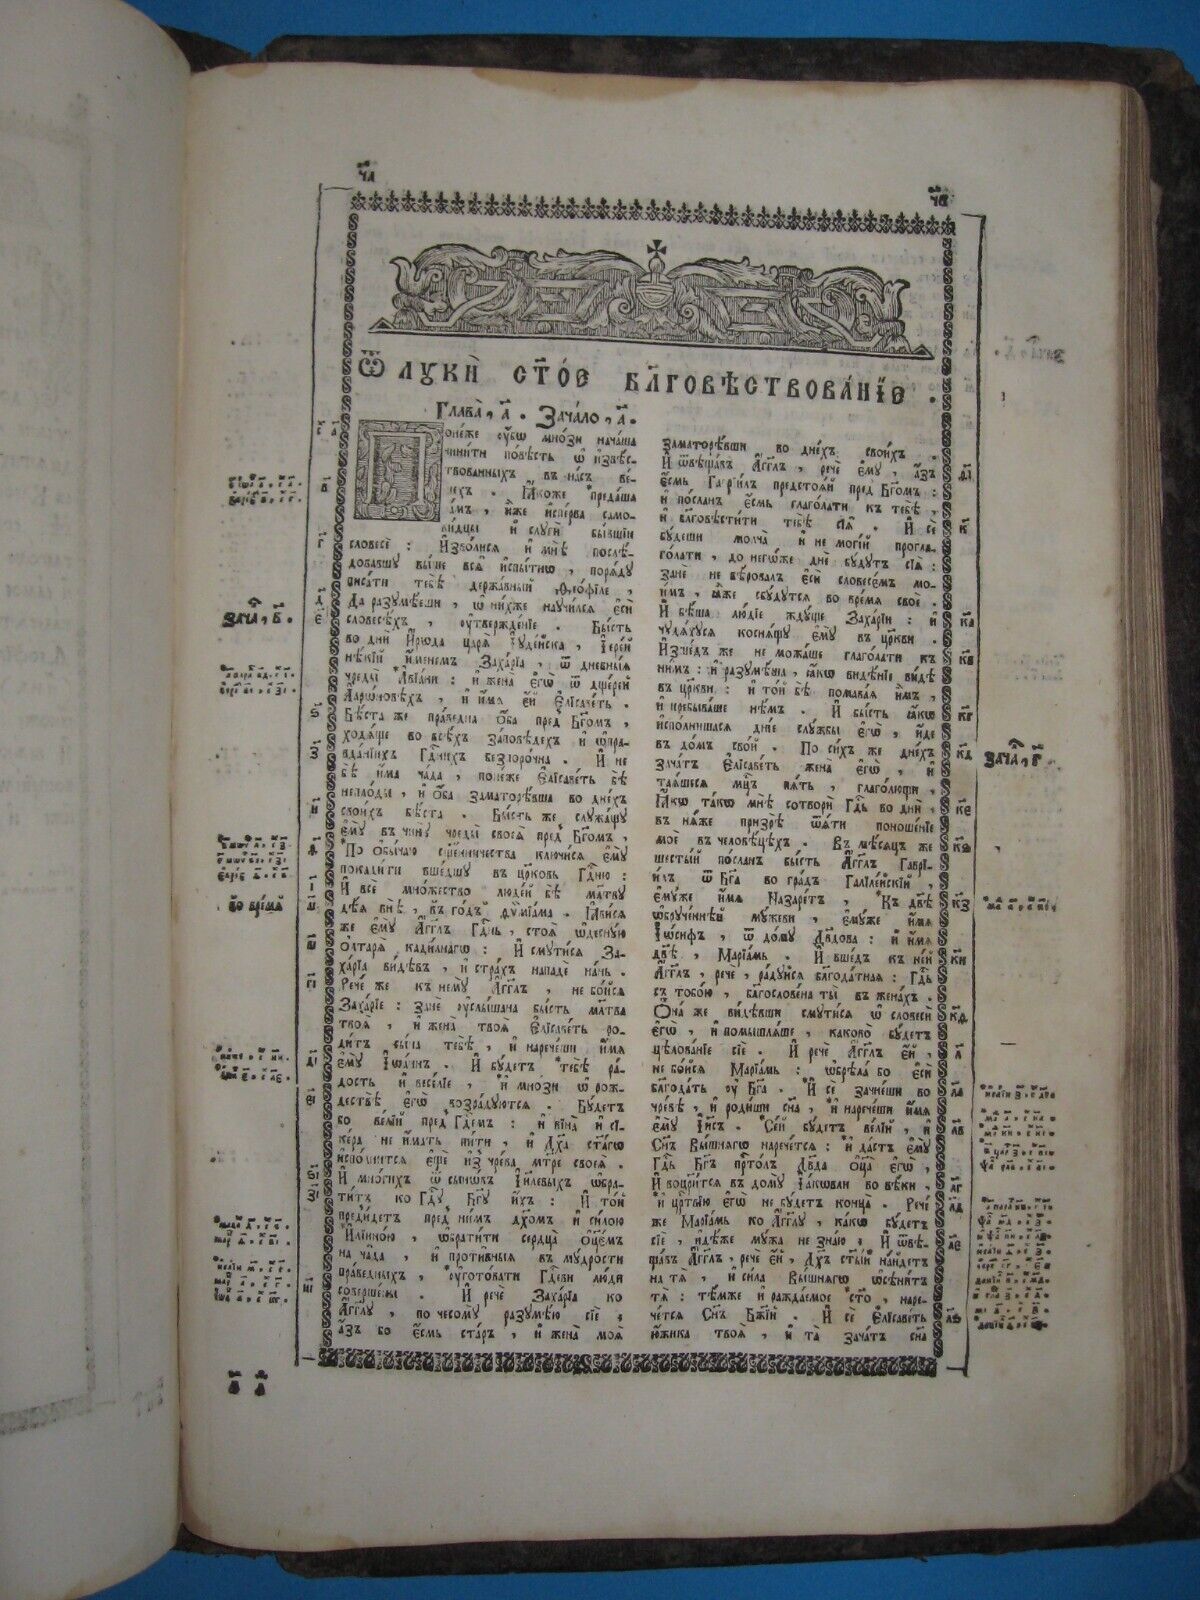 ѿ лꙋкѝ ст҃о́е бл҃говѣствова́нїе .
Глава̀ , а҃ . Зача́ло , а҃ .
Поне́же ᲂу҆́бѡ мно́зи нача́ша
чини́ти по́вѣсть ѡ҆ и҆звѣс-
твованныхъ въ на́съ ве-
щехъ . Ꙗ҆́коже преда́ша
на́мъ , и҆̀же и҆спе́рва само-
ви́дцы и҆ слꙋги̑ бы́вшїи
словесѐ : И҆зво́лисѧ и҆ мнѣ̀ послѣ́-
довавшꙋ вы́ше всѧ̑ и҆спы́тнѡ , порѧ́дꙋ
писа́ти тебѣ̀ держа́вный Ѳео́фїле ,
Да разꙋмѣ́еши , ѡ҆ ни́хже научи́лсѧ є҆сѝ
словесѣ́хъ , ᲂу҆твержде́нїе . Бы́сть
во днѝ И҆́рѡда царѧ̀ І҆ꙋде́йска , І҆ере́й
нѣ́кїй и҆́менемъ Заха́рїа , ѿ дневны́ѧ
чреды̀ А҆вїа́ни : и҆ жена̀ є҆гѡ̀ ѿ дще́рей
А҆арѡ́новѣхъ , и҆ и҆́мѧ є҆́й Е҆лїсаве́ть .
Бѣ́ста же пра́ведна ѻ҆́ба пред̾ Бг҃омъ ,
ходѧ́ще во всѣ́хъ за́повѣдехъ и҆ ѡ҆пра-
вда́нїихъ Гд҇нихъ безпоро́чна . И҆ не
бѣ̀ и҆́ма ча́да , поне́же Е҆лїсаве́ть бѣ̀
непло́ды , и҆ ѻ҆́ба заматорѣ́вша во дне́хъ
свои́хъ бѣ́ста . Бы́сть же слꙋжа́щꙋ
є҆мꙋ̀ въ чи́нꙋ чреды̀ своеѧ̀ пред̾ Бг҃омъ ,
По ѻ҆бы́чаю сщ҃е́нничества ключи́сѧ є҆мꙋ̀
покади́ти вше́дшꙋ въ цр҃ковь Гд҇ню :
И҆ всѐ мно́жество люде́й бѣ̀ мл҃твꙋ
дѣ́ѧ внѣ̀ , въ го́дъ ѳѷмїа́ма . Ꙗ҆ви́сѧ
же є҆мꙋ̀ А҆́гг҃лъ Гд҇нь , стоѧ̀ ѡ҆деснꙋ́ю
Ѻ҆лтарѧ̀ кади́лнагѡ : И҆ смꙋти́сѧ За-
ха́рїа ви́дѣвъ , и҆ стра́хъ нападе́ на́нь .
Рече́ же къ немꙋ̀ А҆́гг҃лъ , не бо́йсѧ
Заха́рїе : занѐ ᲂу҆слы́шана бы́сть мл҃тва
твоѧ̀ , и҆ жена̀ твоѧ̀ Е҆лїсаве́ть ро-
ди́тъ сы́на тебѣ̀ , и҆ нарече́ши и҆́мѧ
є҆мꙋ̀ І҆ѡа́ннъ . И҆ бꙋ́детъ тебѣ̀ ра́-
дость и҆ весе́лїе , и҆ мно́зи ѡ҆ рож-
дествѣ̀ є҆гѡ̀ возра́дꙋютсѧ . Бꙋ́детъ
бо ве́лїй пред̾ Гд҇емъ : и҆ вїна̀ и҆ сї-
ке́ра не и҆́мать пи́ти , и҆ Дх҃а ст҃а́гѡ
и҆спо́лнитсѧ є҆щѐ и҆з̾ чре́ва мт҃ре своеѧ̀ .
И҆ мно́гихъ ѿ сынѡ́въ І҆и҃левыхъ ѡ҆бра-
ти́тъ ко Гд҇ꙋ Бг҃ꙋ и҆́хъ : И҆ то́й
пред̾и́детъ пред̾ ни́мъ дх҃омъ и҆ си́лою
И҆лїино́ю , ѡ҆брати́ти сердца̀ ѻ҆ц҃е́мъ
на ча́да , и҆ проти́вныѧ въ мꙋ́дрости
пра́ведныхъ , ᲂу҆гото́вати Гд҇еви лю́ди
соверше́ны . И҆ речѐ Заха́рїа ко
А҆́гг҃лꙋ , по чесомꙋ̀ разꙋмѣ́ю сїѐ ,
а҆́зъ бо є҆́смь ста́ръ , и҆ жена̀ моѧ̀
заматорѣ́вши во дне́хъ свои́хъ .
И҆ ѿвѣща́въ А҆́гг҃лъ , речѐ є҆мꙋ̀ , а҆́зъ
є҆́смь Гаврїи́лъ предстоѧ́й пред̾ Бг҃омъ :
и҆ по́сланъ є҆́смь глаго́лати къ тебѣ̀ ,
и҆ бл҃говѣсти́ти тебѣ̀ сїѧ̑ . И҆ сѐ
бꙋ́деши молча̀ и҆ не могі́й прогла-
го́лати , до негѡ́же днѐ бꙋ́дꙋтъ сїѧ̑ :
занѐ не вѣ́ровалъ є҆сѝ словесе́мъ мо-
и҆̀мъ , ꙗ҆̀же сбꙋ́дꙋтсѧ во вре́мѧ своѐ .
И҆ бѣ́ша лю́дїе ждꙋ́ще Заха́рїи : и҆
чꙋдѧ́хꙋсѧ коснѧ́щꙋ є҆мꙋ̀ въ цр҃кви .
И҆зше́дъ же не можа́ше глаго́лати къ
ни́мъ : и҆ разꙋмѣ́ша , ꙗ҆́кѡ видѣ́нїе ви́дѣ
въ цр҃кви : и҆ то́й бѣ̀ помава́ѧ и҆̀мъ ,
и҆ пребыва́ше нѣ́мъ . И҆ бы́сть ꙗ҆́кѡ
и҆спо́лнишасѧ дні́е слꙋ́жбы є҆гѡ̀ , и҆́де
въ до́мъ сво́й . По си́хъ же дне́хъ
зача́тъ Е҆лїсаве́ть жена̀ є҆гѡ̀ , и҆
таѧ́шесѧ мц҇ъ пѧ́ть , глаго́лющи ,
Ꙗ҆́кѡ та́кѡ мнѣ̀ сотворѝ Гд҇ь во днѝ ,
въ нѧ́же призрѣ̀ ѿѧ́ти поноше́нїе
моѐ въ человѣ́цѣхъ . Въ мѣ́сѧцъ же
шесты́й по́сланъ бы́сть А҆́гг҃лъ Гаврї-
и́лъ ѿ Бг҃а во гра́дъ Галїле́йскїй ,
є҆мꙋ́же и҆́мѧ Назаре́тъ , Къ дв҃ѣ
ѡ҆брꙋче́ннѣй мꙋ́жеви , є҆мꙋ́же и҆́мѧ
І҆ѡ́сифъ , ѿ до́мꙋ Дв҃дова : и҆ и҆́мѧ
дв҃ѣ , Марїа́мь . И҆ вше́дъ къ не́й
А҆́гг҃лъ , речѐ , ра́дꙋйсѧ бл҃года́тнаѧ : Гд҇ь
съ тобо́ю , бл҃гослове́на ты̀ въ жена́хъ .
Ѻ҆на́ же ви́дѣвши смꙋти́сѧ ѡ҆ словесѝ
є҆гѡ̀ , и҆ помышлѧ́ше , каково̀ бꙋ́детъ
цѣлова́нїе сїѐ . И҆ речѐ А҆́гг҃лъ є҆́й ,
не бо́йсѧ Марїа́мь : ѡ҆брѣ́ла бо є҆сѝ
бл҃года́ть ᲂу҆ Бг҃а . И҆ сѐ зачне́ши во
чре́вѣ , и҆ роди́ши сн҃а , и҆ нарече́ши и҆́мѧ
є҆мꙋ̀ І҆и҃съ . Се́й бꙋ́детъ ве́лїй , и҆
Сн҃ъ Вы́шнѧгѡ нарече́тсѧ : и҆ да́стъ є҆мꙋ̀
Гд҇ь Бг҃ъ прⷭ҇то́лъ Дв҃да ѻ҆ц҃а̀ є҆гѡ̀ ,
И҆ воцр҃и́тсѧ въ домꙋ̀ І҆а́кѡвли во вѣ́ки ,
и҆ цр҇твїю є҆гѡ̀ не бꙋ́детъ конца̀ . Рече́
же Марїа́мь ко А҆́гг҃лꙋ , ка́кѡ бꙋ́детъ
сїѐ , и҆дѣ́же мꙋ́жа не зна́ю , И҆ ѿвѣ-
ща́въ А҆́гг҃лъ , речѐ є҆́й , Дх҃ъ ст҃ы́й на́йдетъ
на тѧ̀ , и҆ си́ла Вы́шнѧгѡ ѡ҆сѣни́тъ
тѧ̀ : тѣ́мже и҆ ражда́емое ст҃о , наре-
че́тсѧ Сн҃ъ Бж҃їй . И҆ сѐ Е҆лїсаве́ть
ю҆́жика твоѧ̀ , и҆ та̀ зача́тъ сн҃а
зача҃ , в҃ .
зача҃ , г҃ .